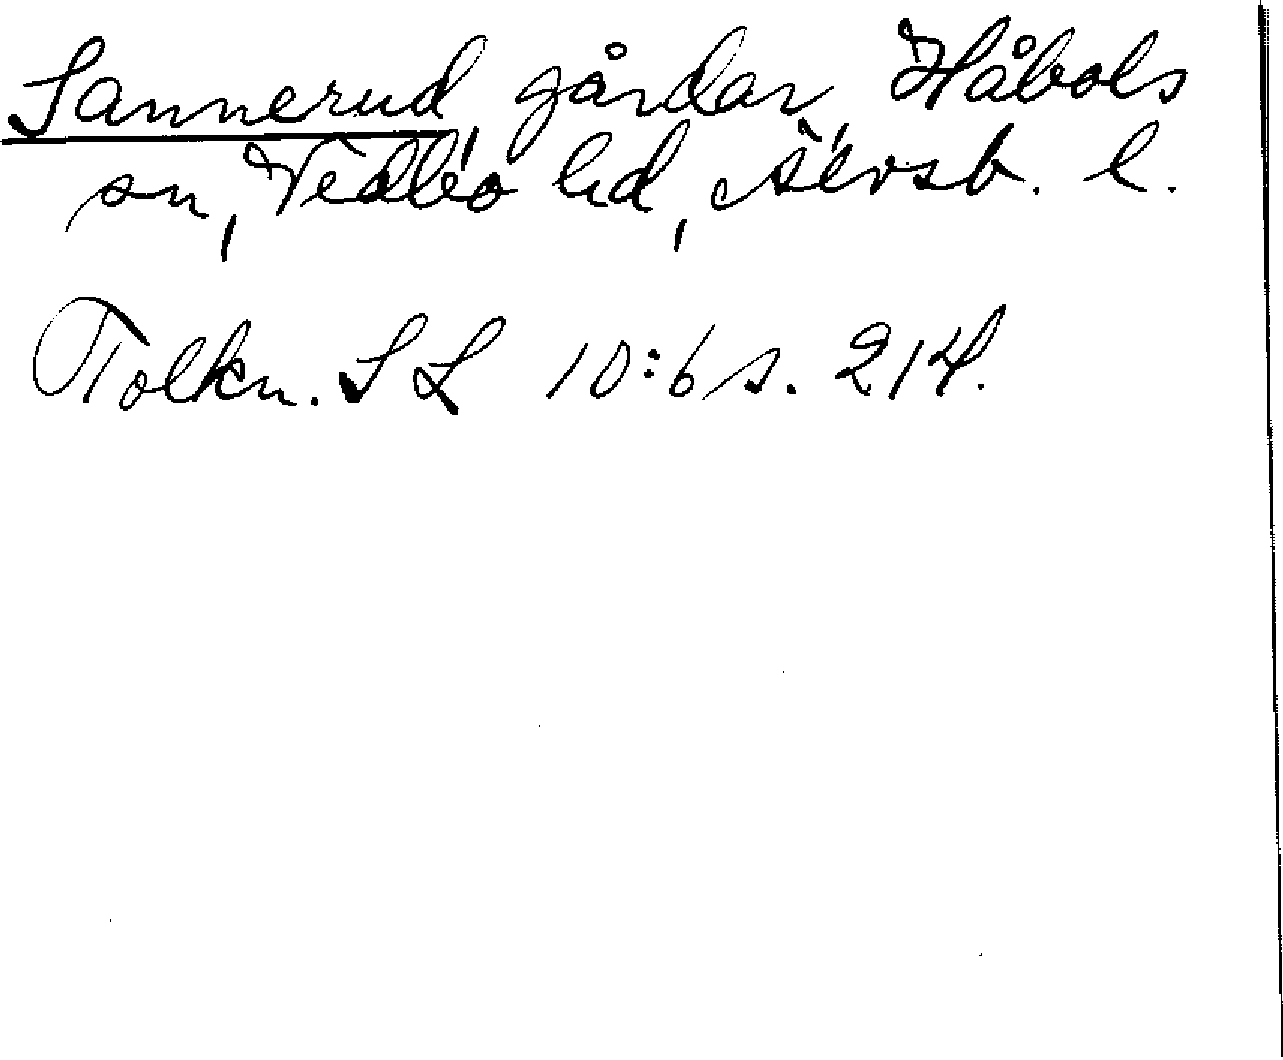 Sannerud, gårdar, Håbols
sn, Vedbo hd, Älvsb. l.
Tolkn. SL 10:6 s. 214.